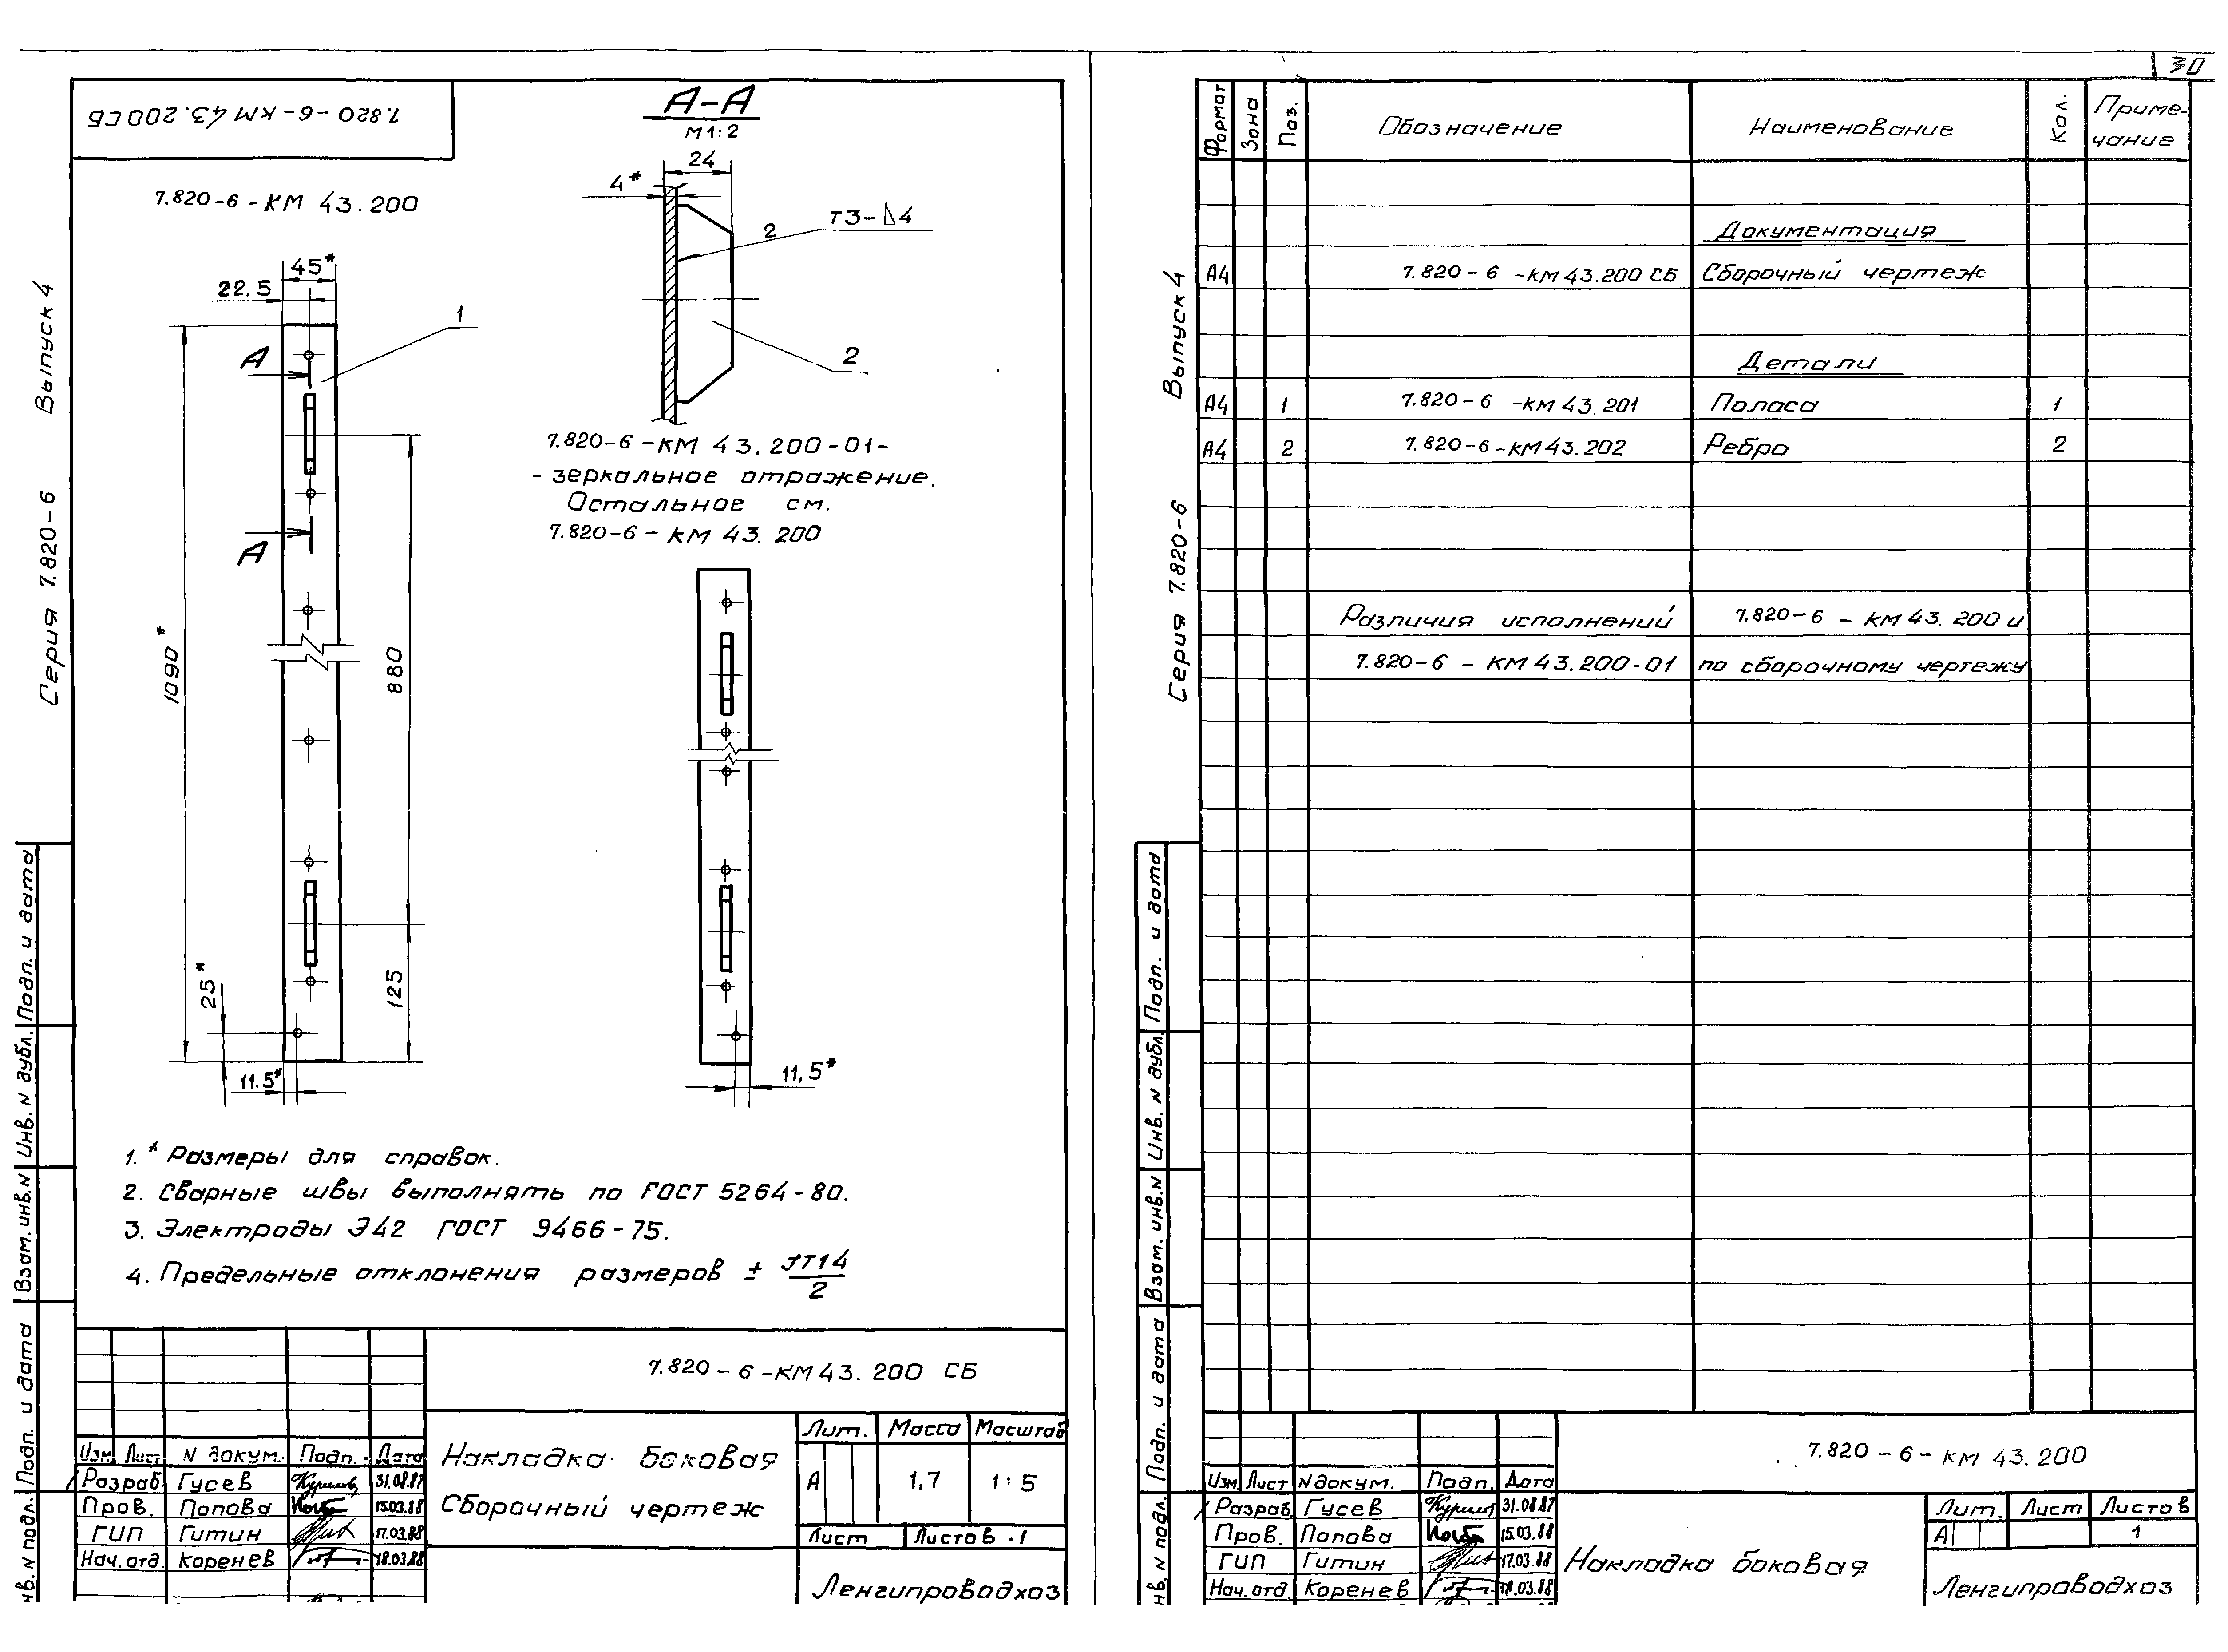 30
7.820-6-КМ 43.200СБ
7.820-6-КМ 43.200
А-А
М1:2
24
4*
2
Т3-◺4
2
45*
22.5
1
А
А
1090*
880
125
25*
11.5*
7.820-6-КМ 43.200-01-
- зеркальное отражение.
Остальное см.
7.820-6-КМ 43.200
11,5*
1. * Размеры для справок.
2. Сварные швы выполнять по ГОСТ 5264-80.
3. Электроды Э42 ГОСТ 9466-75.
4. Предельные отклонения размеров ± JT14/2
Серия 7.820-6 Выпуск 4
Подп. и дата
Инв. N дубл.
Взам. инв. N
Подп. и дата
нв. N подл.
7.820-6-КМ 43.200 СБ
Изм Лист N докум. Подп. Дата
Разраб. Гусев 31.08.87
Пров. Попова 15.03.88
ГИП Гитин 17.03.88
Нач.отд. Коренев 18.03.88
Накладка боковая
Сборочный чертеж
Лит. Масса Масштаб
А 1,7 1:5
Лист Листов -1
Ленгипроводхоз
Серия 7.820-6 Выпуск 4
Подп. и дата
Инв. N дубл.
Взам. инв. N
Подп. и дата
нв. N подл.
Формат Зона Поз. Обозначение Наименование Кол. Приме-
чание
Документация
А4 7.820-6-КМ 43.200 СБ Сборочный чертеж
Детали
А4 1 7.820-6-КМ 43.201 Полоса 1
А4 2 7.820-6-КМ 43.202 Ребро 2
Различия исполнений 7.820-6-КМ 43.200 и
7.820-6-КМ 43.200-01 по сборочному чертежу
7.820-6-КМ 43.200
Изм Лист N докум. Подп. Дата
Разраб. Гусев 31.08.87
Пров. Попова 15.03.88
ГИП Гитин 17.03.88
Нач.отд. Коренев 18.03.88
Накладка боковая
Лит. Лист Листов
А 1
Ленгипроводхоз